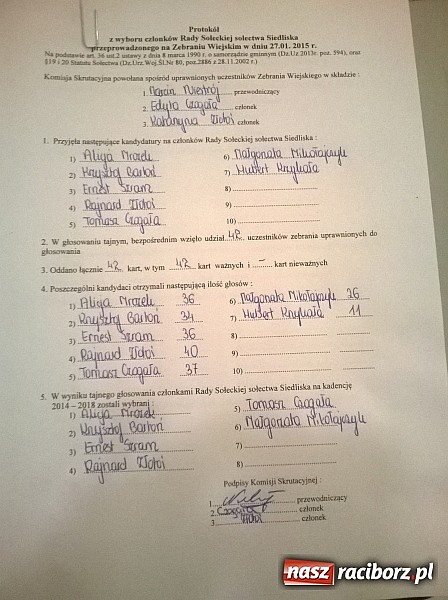 Protokół
z wyboru członków Rady Sołeckiej sołectwa Siedliska
przeprowadzonego na Zebraniu Wiejskim w dniu 27.01. 2015 r.
Na podstawie art. 36 ust.2 ustawy z dnia 8 marca 1990 r. o samorządzie gminnym (Dz.Uz 2013r. poz. 594), oraz
§19 i 20 Statutu Sołectwa (Dz.Urz.Woj.Śl.Nr 80, poz.2886 z 28.11.2002 r.)
Komisja Skrutacyjna powołana spośród uprawnionych uczestników Zebrania Wiejskiego w składzie :
1. Marcin Niestrój przewodniczący
2. Edyta Czogała członek
3. Katarzyna członek
1. Przyjęła następujące kandydatury na członków Rady Sołeckiej sołectwa Siedliska :
1) Alicja Mrozek
2) Krzysztof Bartoń
3) Ernest Szram
4) Rajnard
5) Tomasz Czogała
6) Małgorzata Mikołajczyk
7) Hubert
8)
9)
10)
2. W głosowaniu tajnym, bezpośrednim wzięło udział 42 uczestników zebrania uprawnionych do
głosowania
3. Oddano łącznie 42 kart, w tym 42 kart ważnych i – kart nieważnych
4. Poszczególni kandydaci otrzymali następującą ilość głosów :
1) Alicja Mrozek 36
2) Krzysztof Bartoń 34
3) Ernest Szram 36
4) Rajnard 40
5) Tomasz Czogała 37
6) Małgorzata Mikołajczyk 26
7) Hubert 11
8)
9)
10)
5. W wyniku tajnego głosowania członkami Rady Sołeckiej sołectwa Siedliska na kadencję
2014 – 2018 zostali wybrani :
1) Alicja Mrozek
2) Krzysztof Bartoń
3) Ernest Szram
4) Rajnard
5) Tomasz Czogała
6) Małgorzata Mikołajczyk
7)
8)
Podpisy Komisji Skrutacyjnej :
1. przewodniczący
2. Czogała członek
3. członek
nasz raciborz.pl